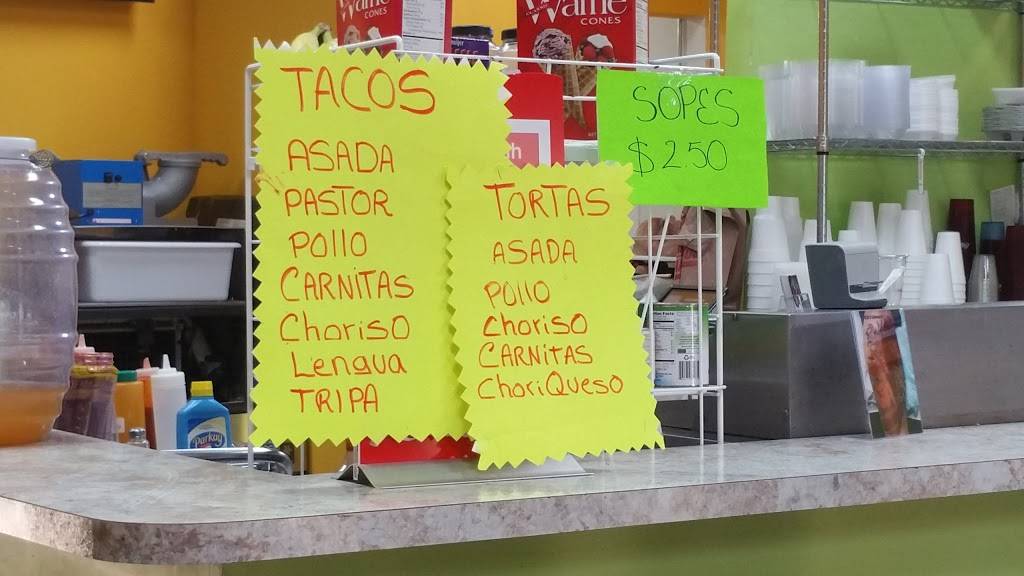 Waffle
CONES
Waffle
CONES
TACOS
ASADA
PASTOR
POLLO
CARNITAS
ChorisO
Lengua
TRIPA
TORTAS
ASADA
POLLO
ChorisO
CARNITAS
ChoriQueso
SOPES
$2.50
Parkay